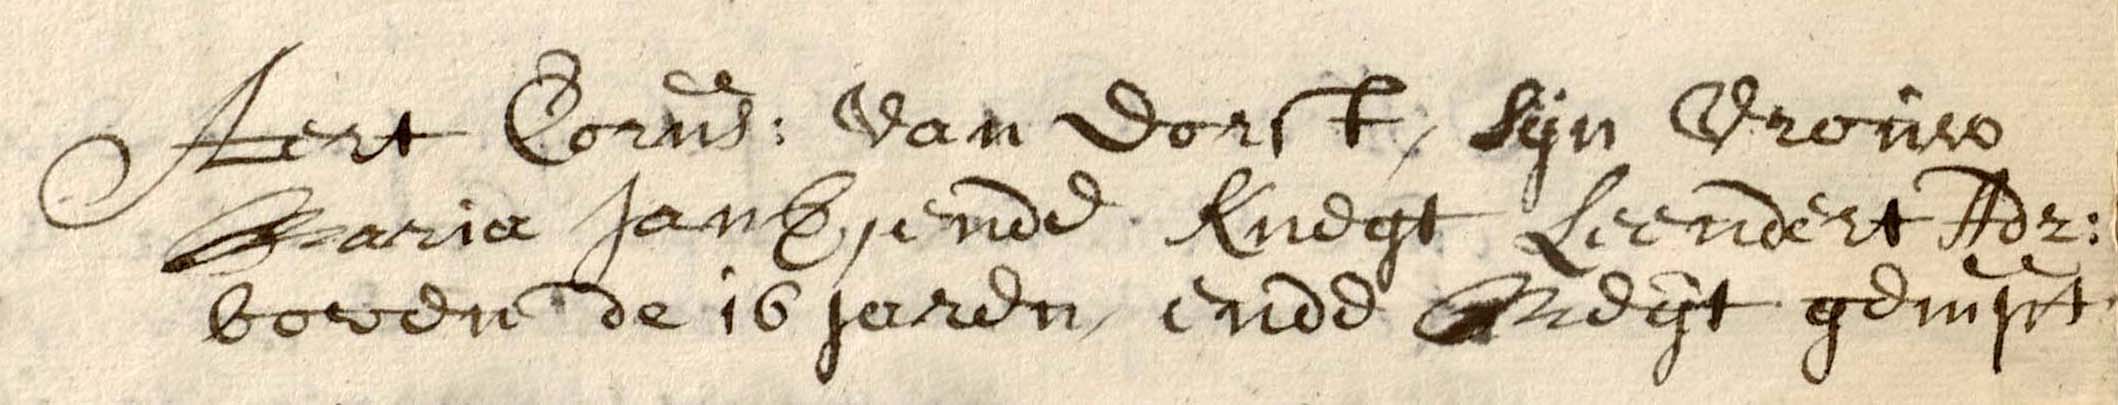 Aert Corns: van Dorst, sijn vrouw
Maria Jansz, ende Knegt Leendert Adr:
boven de 16 jaren, ende Meijt